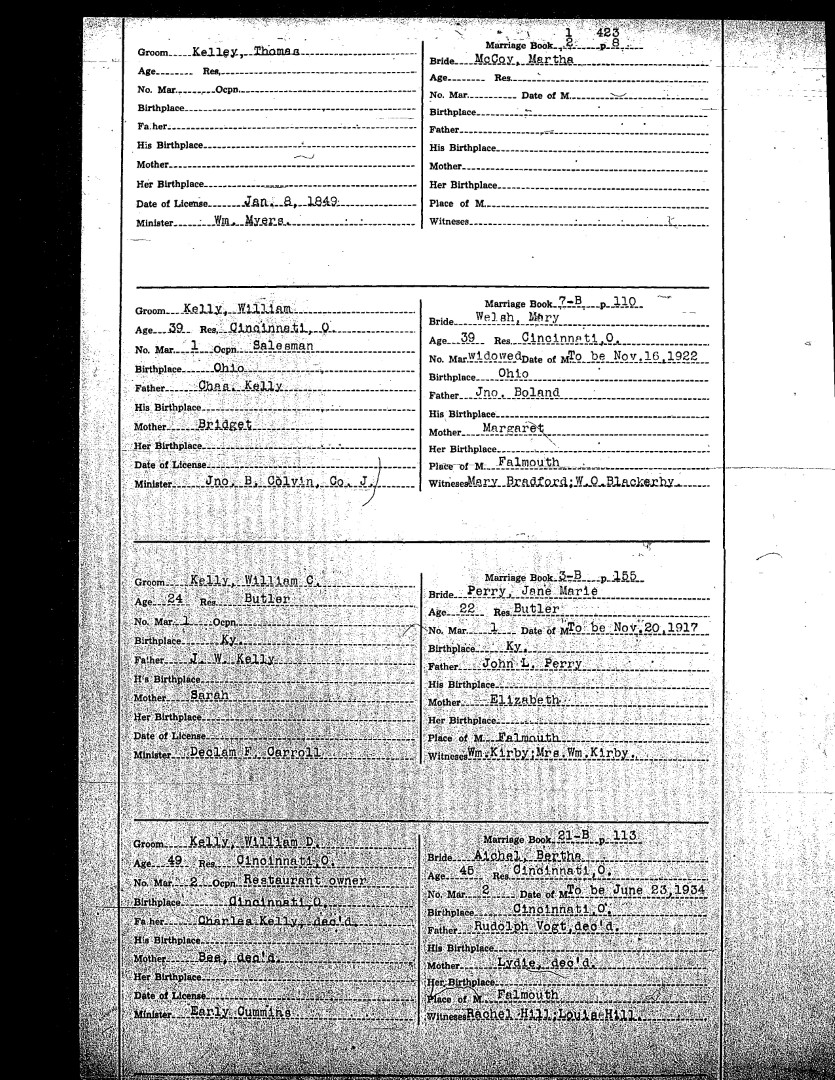 1 423
Marriage Book 2 p. 8
Groom Kelley, Thomas
Bride McCoy, Martha
Age Res.
Age Res.
No. Mar. Ocpn.
No. Mar. Date of M.
Birthplace
Birthplace
Father
Father
His Birthplace
His Birthplace
Mother
Mother
Her Birthplace
Her Birthplace
Date of License Jan. 8, 1849
Place of M.
Minister Wm. Myers.
Witnesses
Marriage Book 7-B p. 110
Groom Kelly, William
Bride Welsh, Mary
Age 39 Res. Cincinnati, O.
Age 39 Res. Cincinnati,O.
No. Mar. 1 Ocpn. Salesman
No. Mar. widowed Date of M. To be Nov.16,1922
Birthplace Ohio
Birthplace Ohio
Father Chas. Kelly
Father Jno. Boland
His Birthplace
His Birthplace
Mother Bridget
Mother Margaret
Her Birthplace
Her Birthplace
Date of License
Place of M. Falmouth
Minister Jno. B. Colvin, Co. J.
Witnesses Mary Bradford;W.O.Blackerby.
Marriage Book 3-B p. 155
Groom Kelly, William C.
Bride Perry, Jane Marie
Age 24 Res. Butler
Age 22 Res. Butler
No. Mar. 1 Ocpn.
No. Mar. 1 Date of M. To be Nov.20,1917
Birthplace Ky.
Birthplace Ky.
Father J. W. Kelly
Father John L. Perry
His Birthplace
His Birthplace
Mother Sarah
Mother Elizabeth
Her Birthplace
Her Birthplace
Date of License
Place of M. Falmouth
Minister Declam F. Carroll
Witnesses Wm.Kirby;Mrs.Wm.Kirby.
Marriage Book 21-B p. 113
Groom Kelly, William D.
Bride Aichel, Bertha
Age 49 Res. Cincinnati,O.
Age 45 Res. Cincinnati,O.
No. Mar. 2 Ocpn. Restaurant owner
No. Mar. 2 Date of M. To be June 23,1934
Birthplace Cincinnati,O.
Birthplace Cincinnati,O.
Father Charles Kelly, dec'd.
Father Rudolph Vogt,dec'd.
His Birthplace
His Birthplace
Mother Bee, dec'd.
Mother Lydie, dec'd.
Her Birthplace
Her Birthplace
Date of License
Place of M. Falmouth
Minister Early Cummins
Witnesses Rachel Hill;Louis Hill.